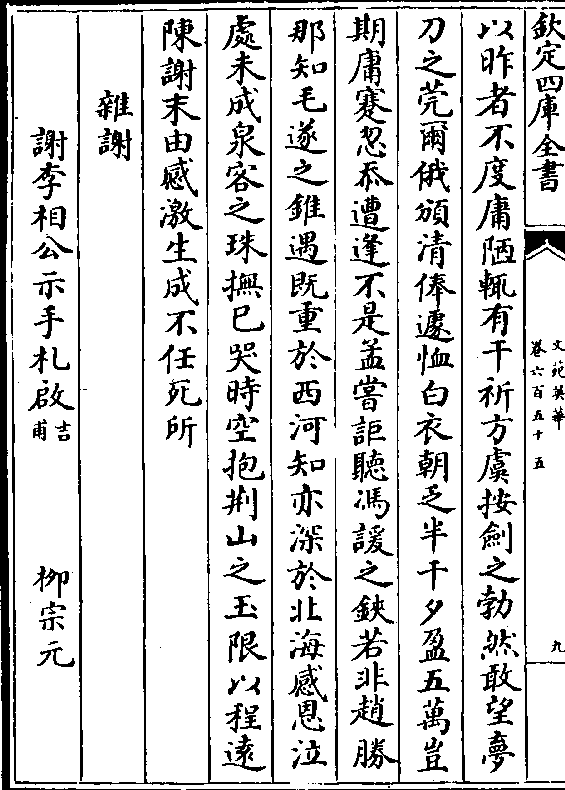 欽定四庫全書
文苑英華
卷六百五十五
九
以昨者不度庸陋輒有干祈方虞按劍之勃然敢望夢
刀之莞爾俄頒清俸遽恤白衣朝乏半千夕盈五萬豈
期庸蹇忽忝遭逢不是孟嘗詎聽馮諼之鋏若非趙勝
那知毛遂之錐遇既重於西河知亦深於北海感恩泣
處未成泉客之珠撫已哭時空抱荆山之玉限以程遠
陳謝末由感激生成不任死所
雜謝
謝李相公示手札啟吉甫 柳宗元